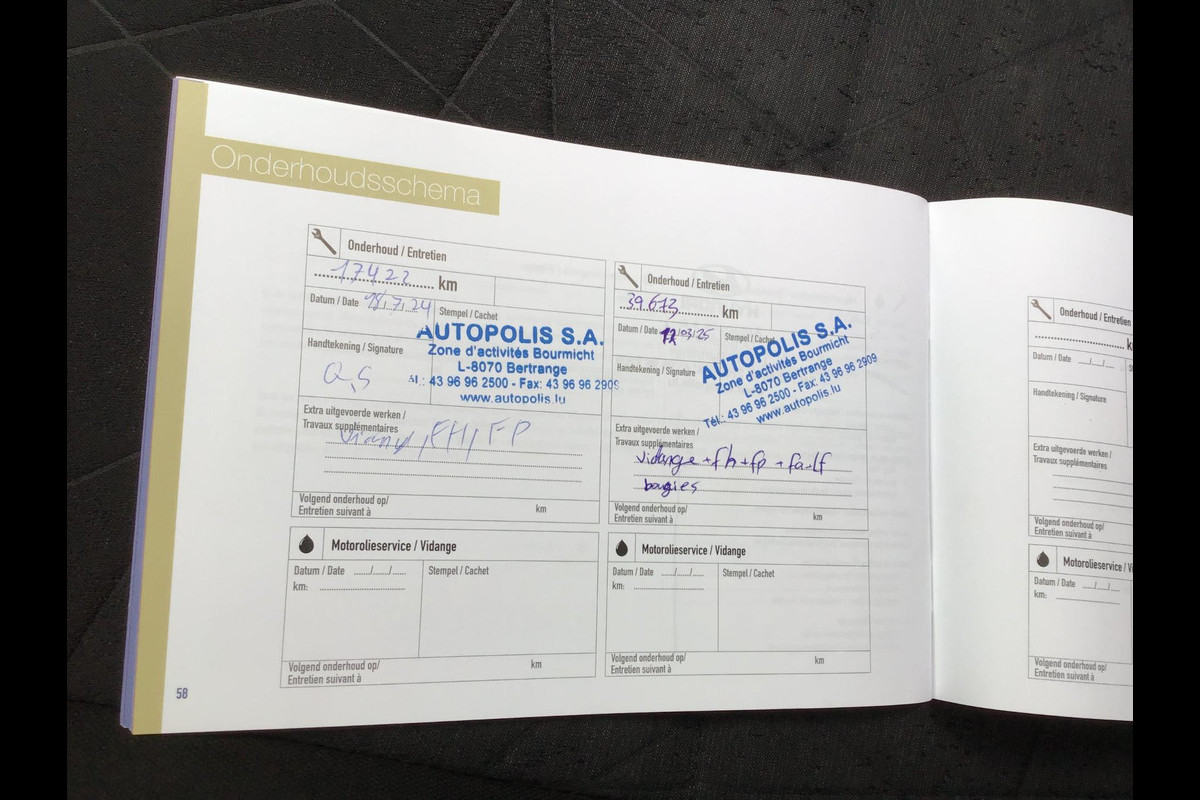 Onderhoudsschema
Onderhoud / Entretien
17422 km
Datum / Date 18.7.24
Stempel / Cachet
AUTOPOLIS S.A.
Zone d'activités Bourmicht
L-8070 Bertrange
él.: 43 96 96 2500 - Fax: 43 96 96 2909
www.autopolis.lu
Handtekening / Signature
Extra uitgevoerde werken /
Travaux supplémentaires
FH, FP
Volgend onderhoud op/
Entretien suivant à
km
Motorolieservice / Vidange
Datum / Date ....../....../......
Stempel / Cachet
km:
Volgend onderhoud op/
Entretien suivant à
km
Onderhoud / Entretien
39.673 km
Datum / Date 12/03/25
Stempel / Cachet
AUTOPOLIS S.A.
Zone d'activités Bourmicht
L-8070 Bertrange
Tél.: 43 96 96 2500 - Fax: 43 96 96 2909
www.autopolis.lu
Handtekening / Signature
Extra uitgevoerde werken /
Travaux supplémentaires
vidange + fh + fp + fa + lf
bougies
Volgend onderhoud op/
Entretien suivant à
km
Motorolieservice / Vidange
Datum / Date ....../....../......
Stempel / Cachet
km:
Volgend onderhoud op/
Entretien suivant à
km
58
Onderhoud / Entretien
Datum / Date ....../....../......
Handtekening / Signature
Extra uitgevoerde werken /
Travaux supplémentaires
Volgend onderhoud op/
Entretien suivant à
Motorolieservice / Vi
Datum / Date ....../....../......
km:
Volgend onderhoud op/
Entretien suivant à